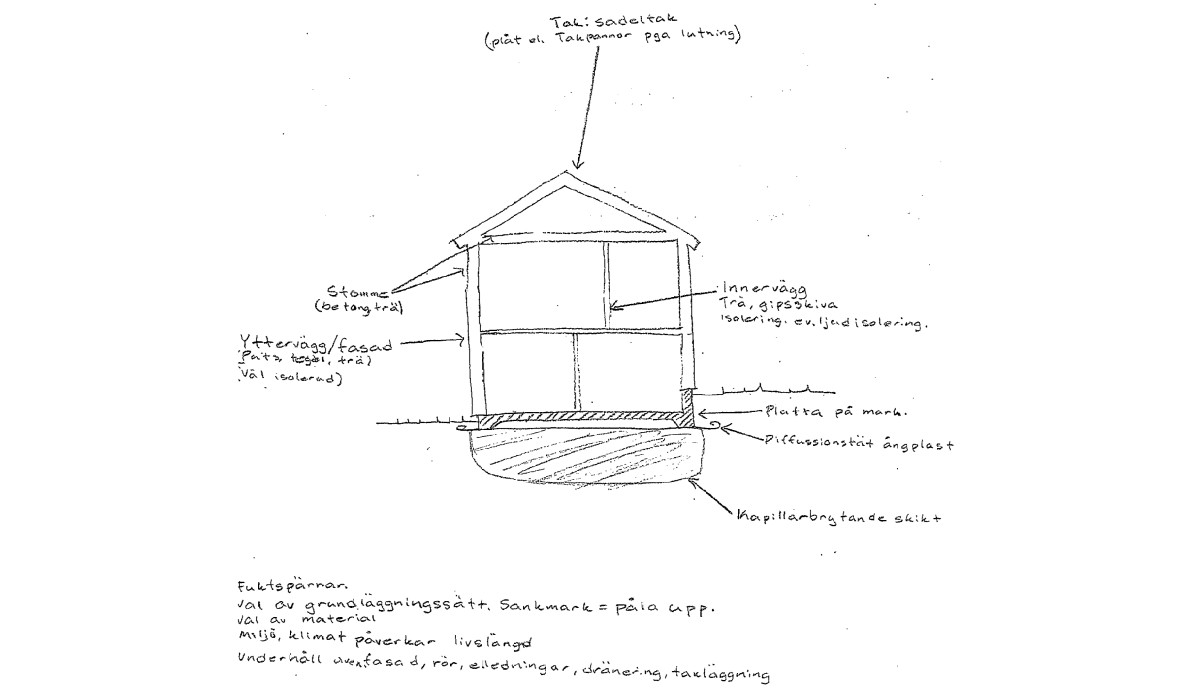 Tak: sadeltak
(plåt el. Takpannor pga lutning)
Stomme
(betong trä)
Innervägg
Trä, gipsskiva
isolering. ev. ljudisolering.
Yttervägg/fasad
Puts, tegel, trä)
Väl isolerad)
Platta på mark.
Diffussionstät ångplast
Kapillärbrytande skikt
Fuktspärrar.
Val av grundläggningssätt. Sankmark = påla upp.
Val av material
Miljö, klimat påverkar livslängd
Underhåll fasad, rör, elledningar, dränering, takläggning